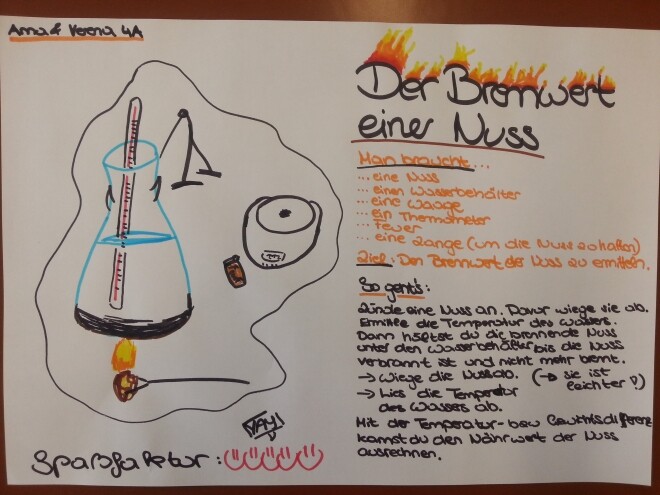 Anna & Verena 4A
Der Brennwert
einer Nuss
Man braucht...
... eine Nuss
... einen Wasserbehälter
... eine Waage
... ein Thermometer
... Feuer
... eine Zange (um die Nuss zu halten)
Ziel: Den Brennwert der Nuss zu ermitteln.
So geht's:
Zünde eine Nuss an. Davor wiege sie ab.
Ermittle die Temperatur des Wassers.
Dann hältst du die brennende Nuss
unter den Wasserbehälter bis die Nuss
verbrannt ist und nicht mehr brennt.
→ Wiege die Nuss ab. (→ sie ist
leichter!)
→ Lies die Temperatur
des Wassers ab.
Mit der Temperatur- bzw Gewichtsdifferenz
kannst du den Nährwert der Nuss
ausrechnen.
YAY!
Spaßfaktor: